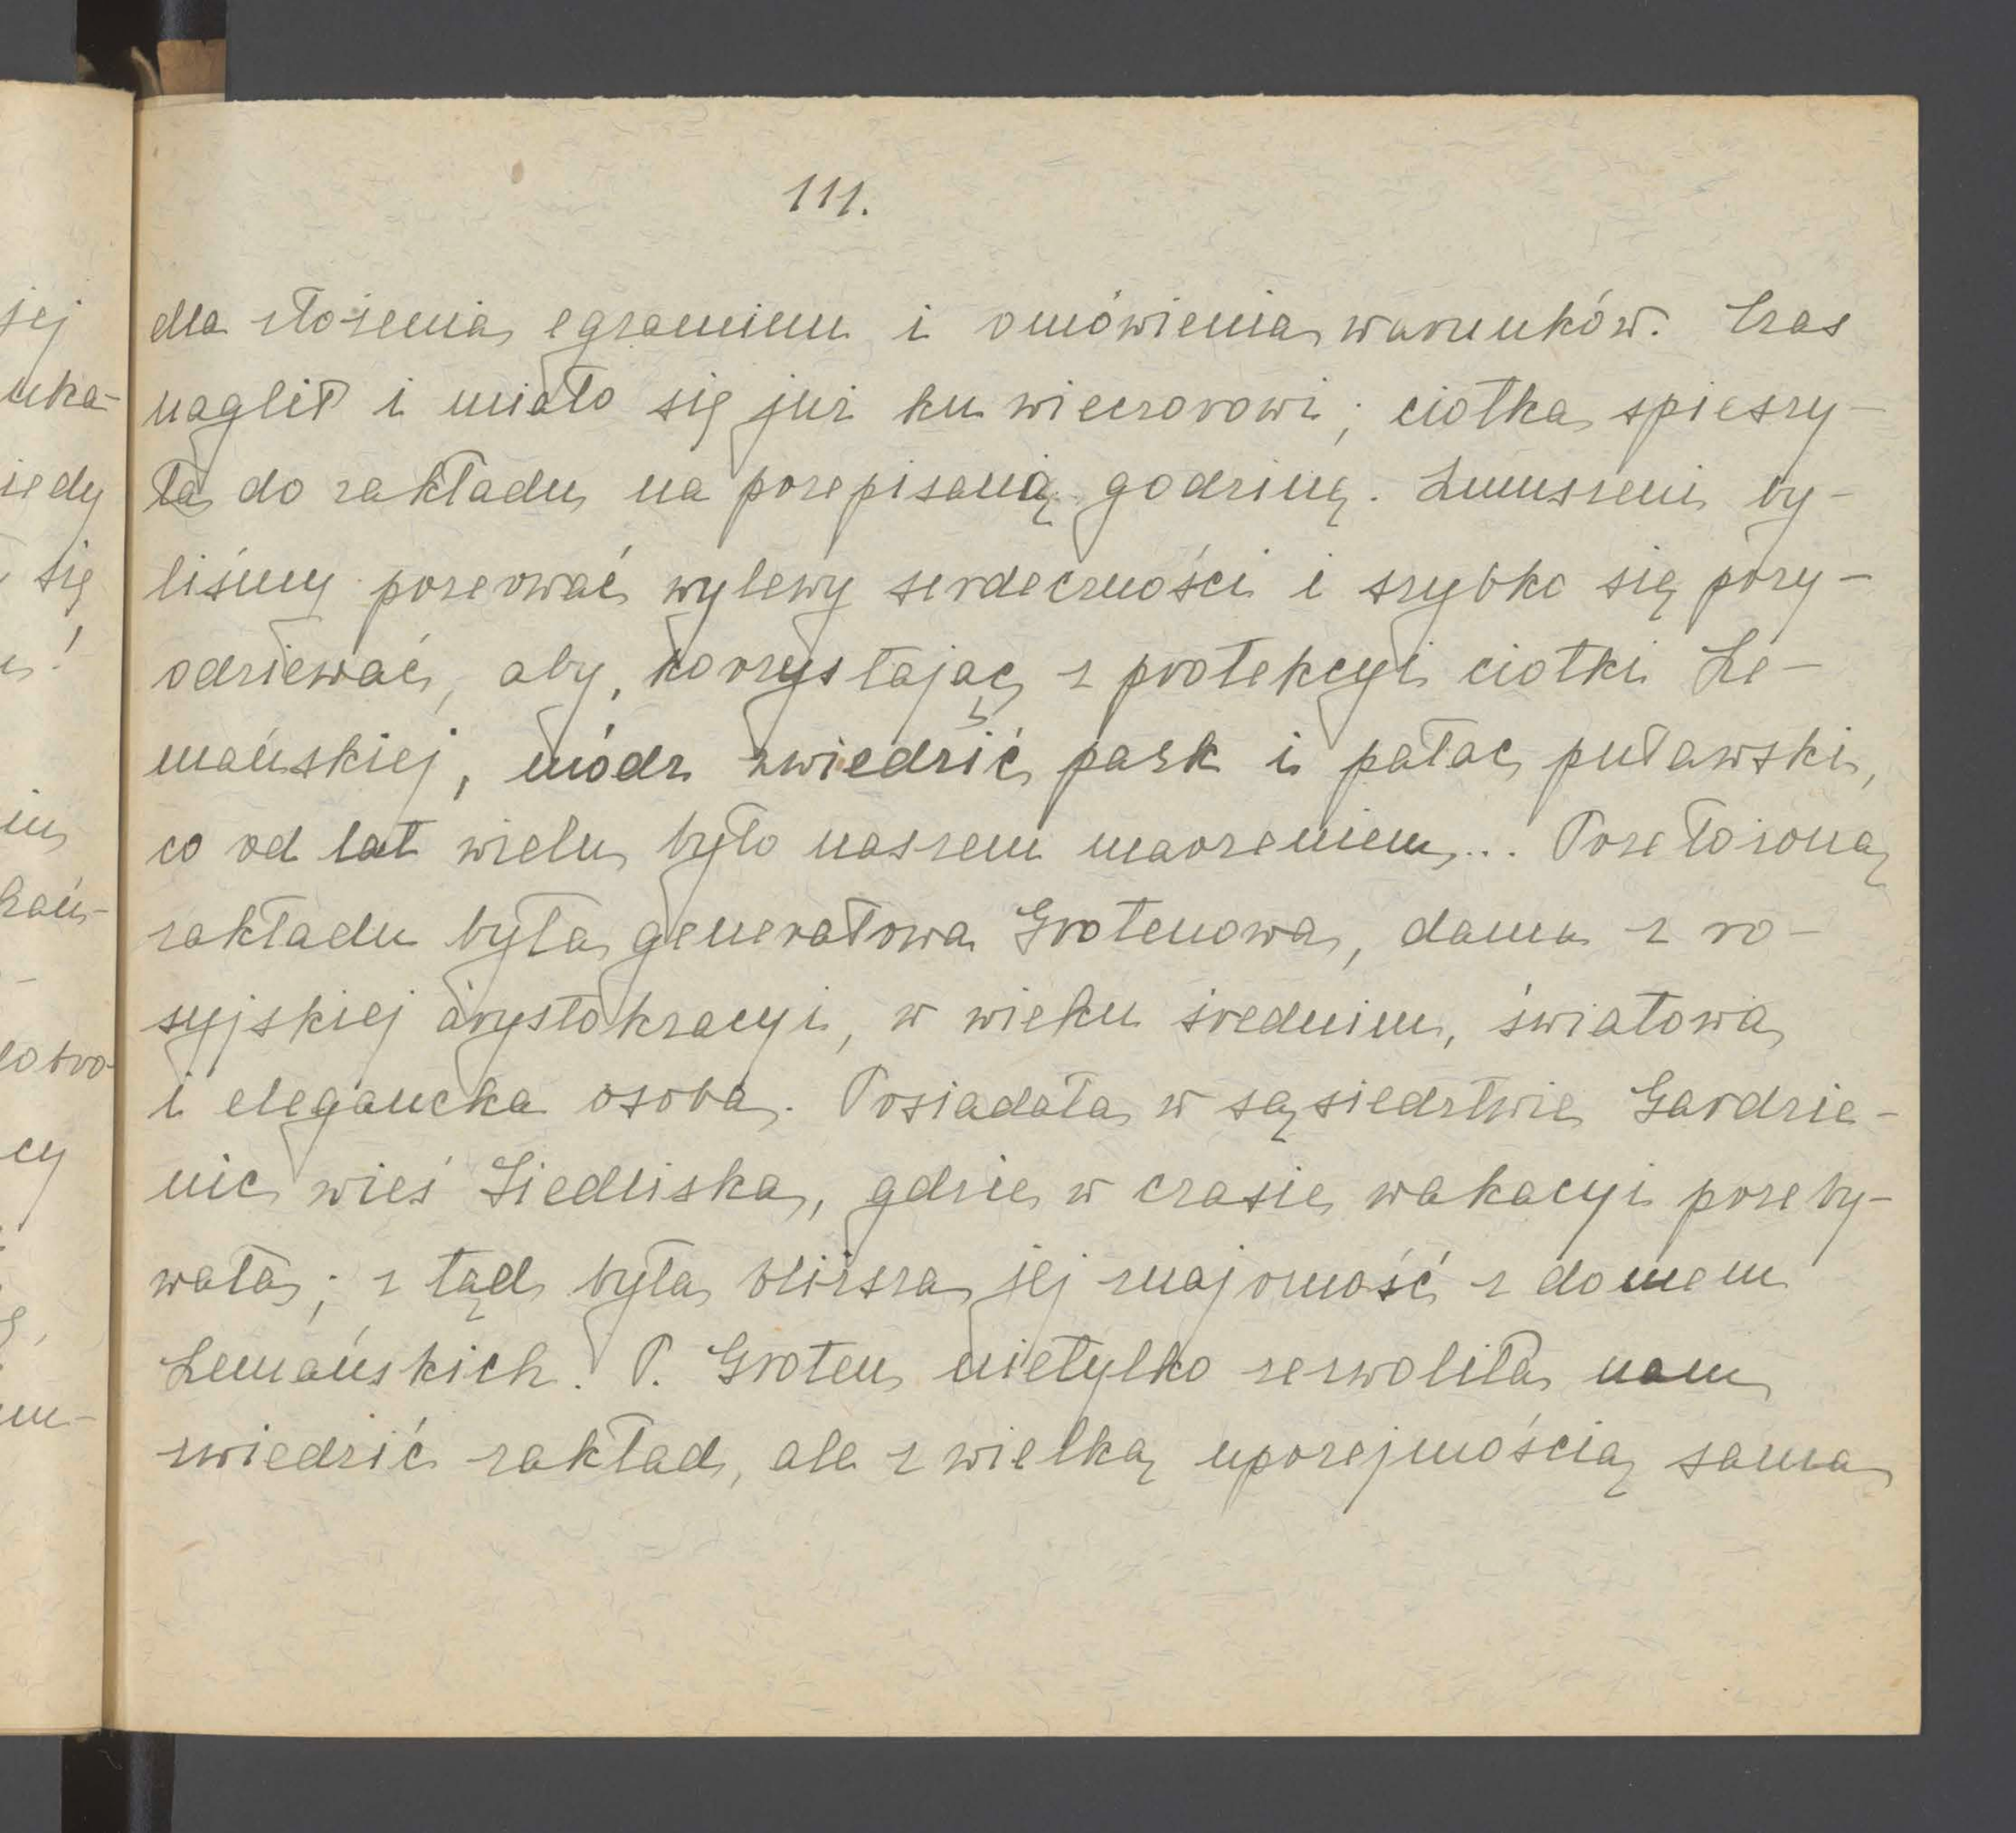 111.
dla złożenia egzaminu i omówienia warunków. Czas
naglił i miało się już ku wieczorowi; ciotka spieszy-
ła do zakładu na przepisaną godzinę. Zmuszeni by-
liśmy przerwać wylewy serdeczności i szybko się przy-
odziewać, aby, korzystając z protekcyi ciotki Le-
mańskiej, módz zwiedzić park i pałac puławski,
co od lat wielu było naszem marzeniem... Przełożoną
zakładu była generałowa Grotenowa, dama z ro-
syjskiej arystokracyi, w wieku średnim, światowa
i elegancka osoba. Posiadała w sąsiedztwie Gardzie-
nic wieś Siedliska, gdzie w czasie wakacyi przeby-
wała; z tąd była bliższa jej znajomość z domem
Lemańskich. P. Groten nietylko zezwoliła nam
zwiedzić zakład, ale z wielką uprzejmością sama
jej
uka-
iedy
się
!
im
hań-
dobro-
cy